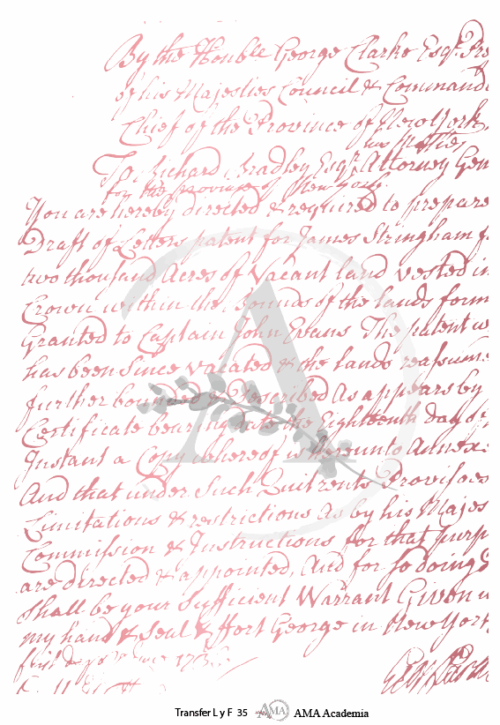 By the Honble George Clarke Esqr. Pre
of his Majesties Council & Command
Chief of the Province of New York,
To Richard Bradley Esqr. Attorney Gen
for the Province of New York.
You are hereby directed & required to prepare
Draft of Letters patent for James Stringham f
two thousand Acres of Vacant land vested in
Crown within the bounds of the lands form
Granted to Captain John Evans The patent w
has been Since vacated & the lands reassume
further bounded & Described As appears by
Certificate bearing date the Eighteenth day of
Instant a Copy whereof is hereunto Annexe
And that under Such Quitrents Provisoes
Limitations & restrictions As by his Majes
Commission & Instructions for that purp
are directed & appointed, And for So doing
Shall be your Sufficient Warrant Given u
my hand & Seal & Fort George in New York
first
Transfer L y F 35 AMA AMA Academia